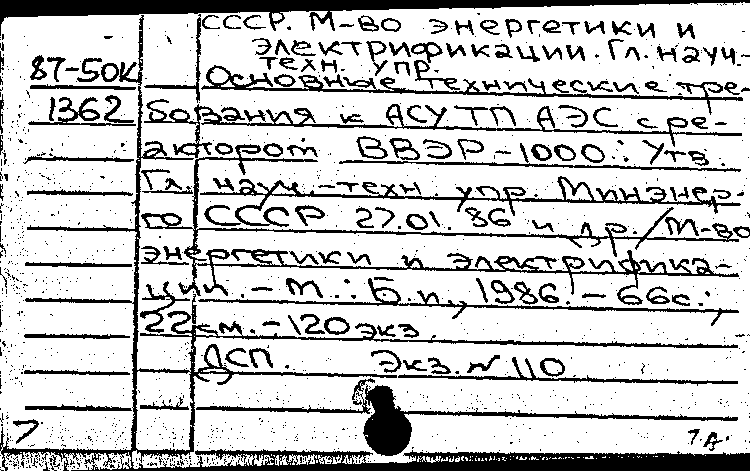 СССР. М-во энергетики и
электрификации. Гл. науч.-
техн. упр.
87-50к Основные технические тре-
1362 бования к АСУ ТП АЭС с ре-
актором ВВЭР-1000: Утв.
Гл. науч.-техн упр. Минэнер-
го СССР 27.01.86 и др./М-во
энергетики и электрифика-
ции. - М.: Б.и., 1986. - 66с.;
22см. - 120экз.
ДСП. Экз. № 110
7